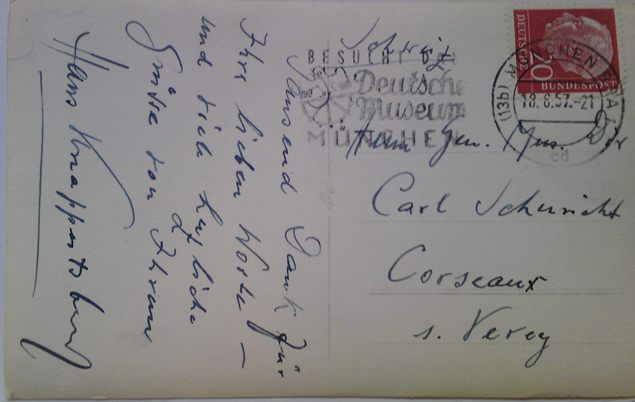 Tausend Dank für
Ihre lieben Worte –
und viele herzliche
Grüße von Ihrem
Hans Knappertsbusch
Schweiz
BESUCHT DAS
Deutsche
Museum
MÜNCHEN
DEUTSCHE
BUNDESPOST
20
(13b) MÜNCHEN
18.6.57.-21
cd
Herrn Gen. Mus. Dir
Carl Schuricht
Corseaux
s. Vevey